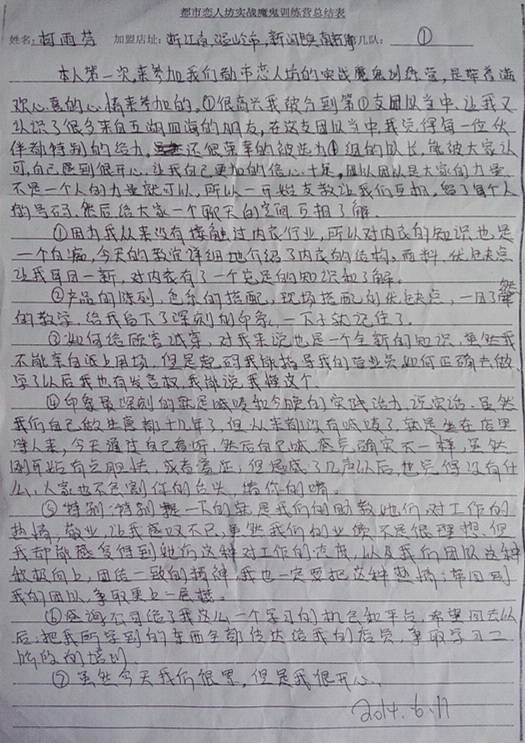 都市恋人坊实战魔鬼训练营总结表
姓名: 柯雨芳 加盟店址: 浙江省, 第几队: ①
本人第一次来参加我们都市恋人坊的实战魔鬼训练营,是带着满
欢心喜的心情来参加的,①很高兴我被分到第①支团队当中,让我又
认识了很多来自五湖四海的朋友,在这支团队当中,我觉得每一位伙
伴都特别的给力,还很荣幸的被选为①组的队长,能被大家认
可,自己感到很开心,让我自己更加的信心十足,团队团队是大家的力量
不是一个人的力量就可以,所以一开始支教让我们互相,留了每个人
的号码,然后给大家一个聊天的空间,互相了解.
①因为我从来没有接触过内衣行业,所以对内衣的知识也是
一个白痴,今天的教官详细地介绍了内衣的结构,面料,优点缺点
让我耳目一新,对内衣有了一个完是的知识和了解.
②产品的陈列,色系的搭配,现场搭配的优点缺点,一目了然
的教学,给我留下了深刻的印象,一下子就记住了.
③如何给顾客试穿,对我来说也是一个全新的知识,虽然我
不能亲自派上用场,但是起码我能指导我的营业员如何正确去做,
学了以后我也有发言权,我能说,我懂这个.
④印象最深刻的就是喊 和今晚的实践活动,说实话,虽然
我们自己做生意都十几年了,但从来都没有喊 了,就是坐在店里
等人来,今天通过自己 ,然后自己喊,感觉确实不一样,虽然
刚开始有点胆怯,或者羞涩,但是喊了几声以后,也觉得没有什
么,人家也不会割你的舌头, 你的嘴.
⑤特别,特别 一下的就是我们的助教她们对工作的
热情,敬业,让我感叹不已,虽然我们的业绩不是很理想,但
我却能感觉得到她们这种对工作的态度,以及我们团队这种
积极向上,团结一致的精神,我也一定要把这种热情,带回到
我的团队,争取更上一层楼.
⑥感谢公司给了我这么一个学习的机会和平台,希望回去以
后,把我所学到的东西全部传达给我的店员,争取学习二
阶段的培训.
⑦虽然今天我们很累,但是我很开心.
2014.6.11